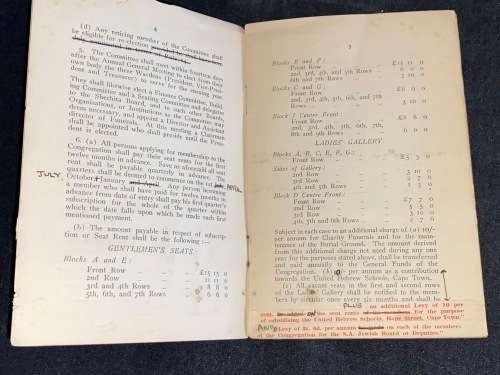 4
(d) Any retiring member of the Committee shall
be eligible for re-election
5. The Committee shall meet within fourteen days
after the Annual General Meeting to elect from their
own body the three Wardens (President, Vice-Presi-
dent and Treasurer) to serve for the ensuing year.
They shall likewise elect a Finance Committee, Building
Committee and a Burial Committee, and delegates
to Shechita Board, and to such other Boards,
Organisations, or Institutions as the Committee may
determine, and appoint a Director and Assistant
Director of Funerals. At this meeting a Chairman
shall be appointed who shall preside until the Presi-
dent is elected.
6. (a) All persons applying for membership to the
Congregation shall pay their seat rents for the first
twelve months in advance. Save as aforesaid all seat
rent shall be payable quarterly in advance. The
quarters shall be deemed to commence on the 1st APRIL,
JULY, October, January and April. Any person becoming
a member who shall have paid for twelve months in
advance from date of entry shall pay his first quarter's
subscription for the whole of the quarter within
which the date falls upon which he made such first
mentioned payment.
(b) The amount payable in respect of subscription
or Seat Rent shall be the following :—
GENTLEMEN'S SEATS.
Blocks A and E:
Front Row £15 15 0
2nd Row 11 11 0
3rd and 4th Rows 8 8 0
5th, 6th, and 7th Rows
Blocks B and F:
Front Row £11 11 0
2nd, 3rd, 4th, and 5th Rows
6th and 7th Rows 3 10 0
Blocks C and G:
Front Row
2nd, 3rd, 4th, 5th, 6th, and 7th
Rows 3 10 0
Block D Centre Front:
Front Row £8 8 0
2nd, 3rd, 4th, 5th, 6th, 7th,
8th and 9th Rows
LADIES' GALLERY.
Blocks A, B, C, E, F, G:
Front Row £5 5 0
Sides of Gallery
2nd Row 3 10 0
3rd Row 2 7 0
4th and 5th Rows
Block D Centre Front:
Front Row £7 7 0
2nd Row
3rd Row
4th, 5th and 6th Rows 2 7 0
Subject in each case to an additional charge of (a) 10/-
per annum for Charity Funerals and for the mainten-
ance of the Burial Ground. The amount derived
from this additional charge not used during any one
year for the purposes stated above, shall be transferred
and paid annually to the General Funds of the
Congregation. (b) per annum as a contribution
towards the United Hebrew Schools, Cape Town.
(c) All vacant seats in the first and second rows
of the Ladies' Gallery shall be notified to the mem-
bers by circular once every six months and shall be
PLUS an additional Levy of 10 per
cent. ON the seat rents for the purpose
of subsidising the United Hebrew Schools, Hope Street, Cape Town.
PLUS Levy of 2s. 6d. per annum on each of the members
of the Congregation for the S.A. Jewish Board of Deputies.